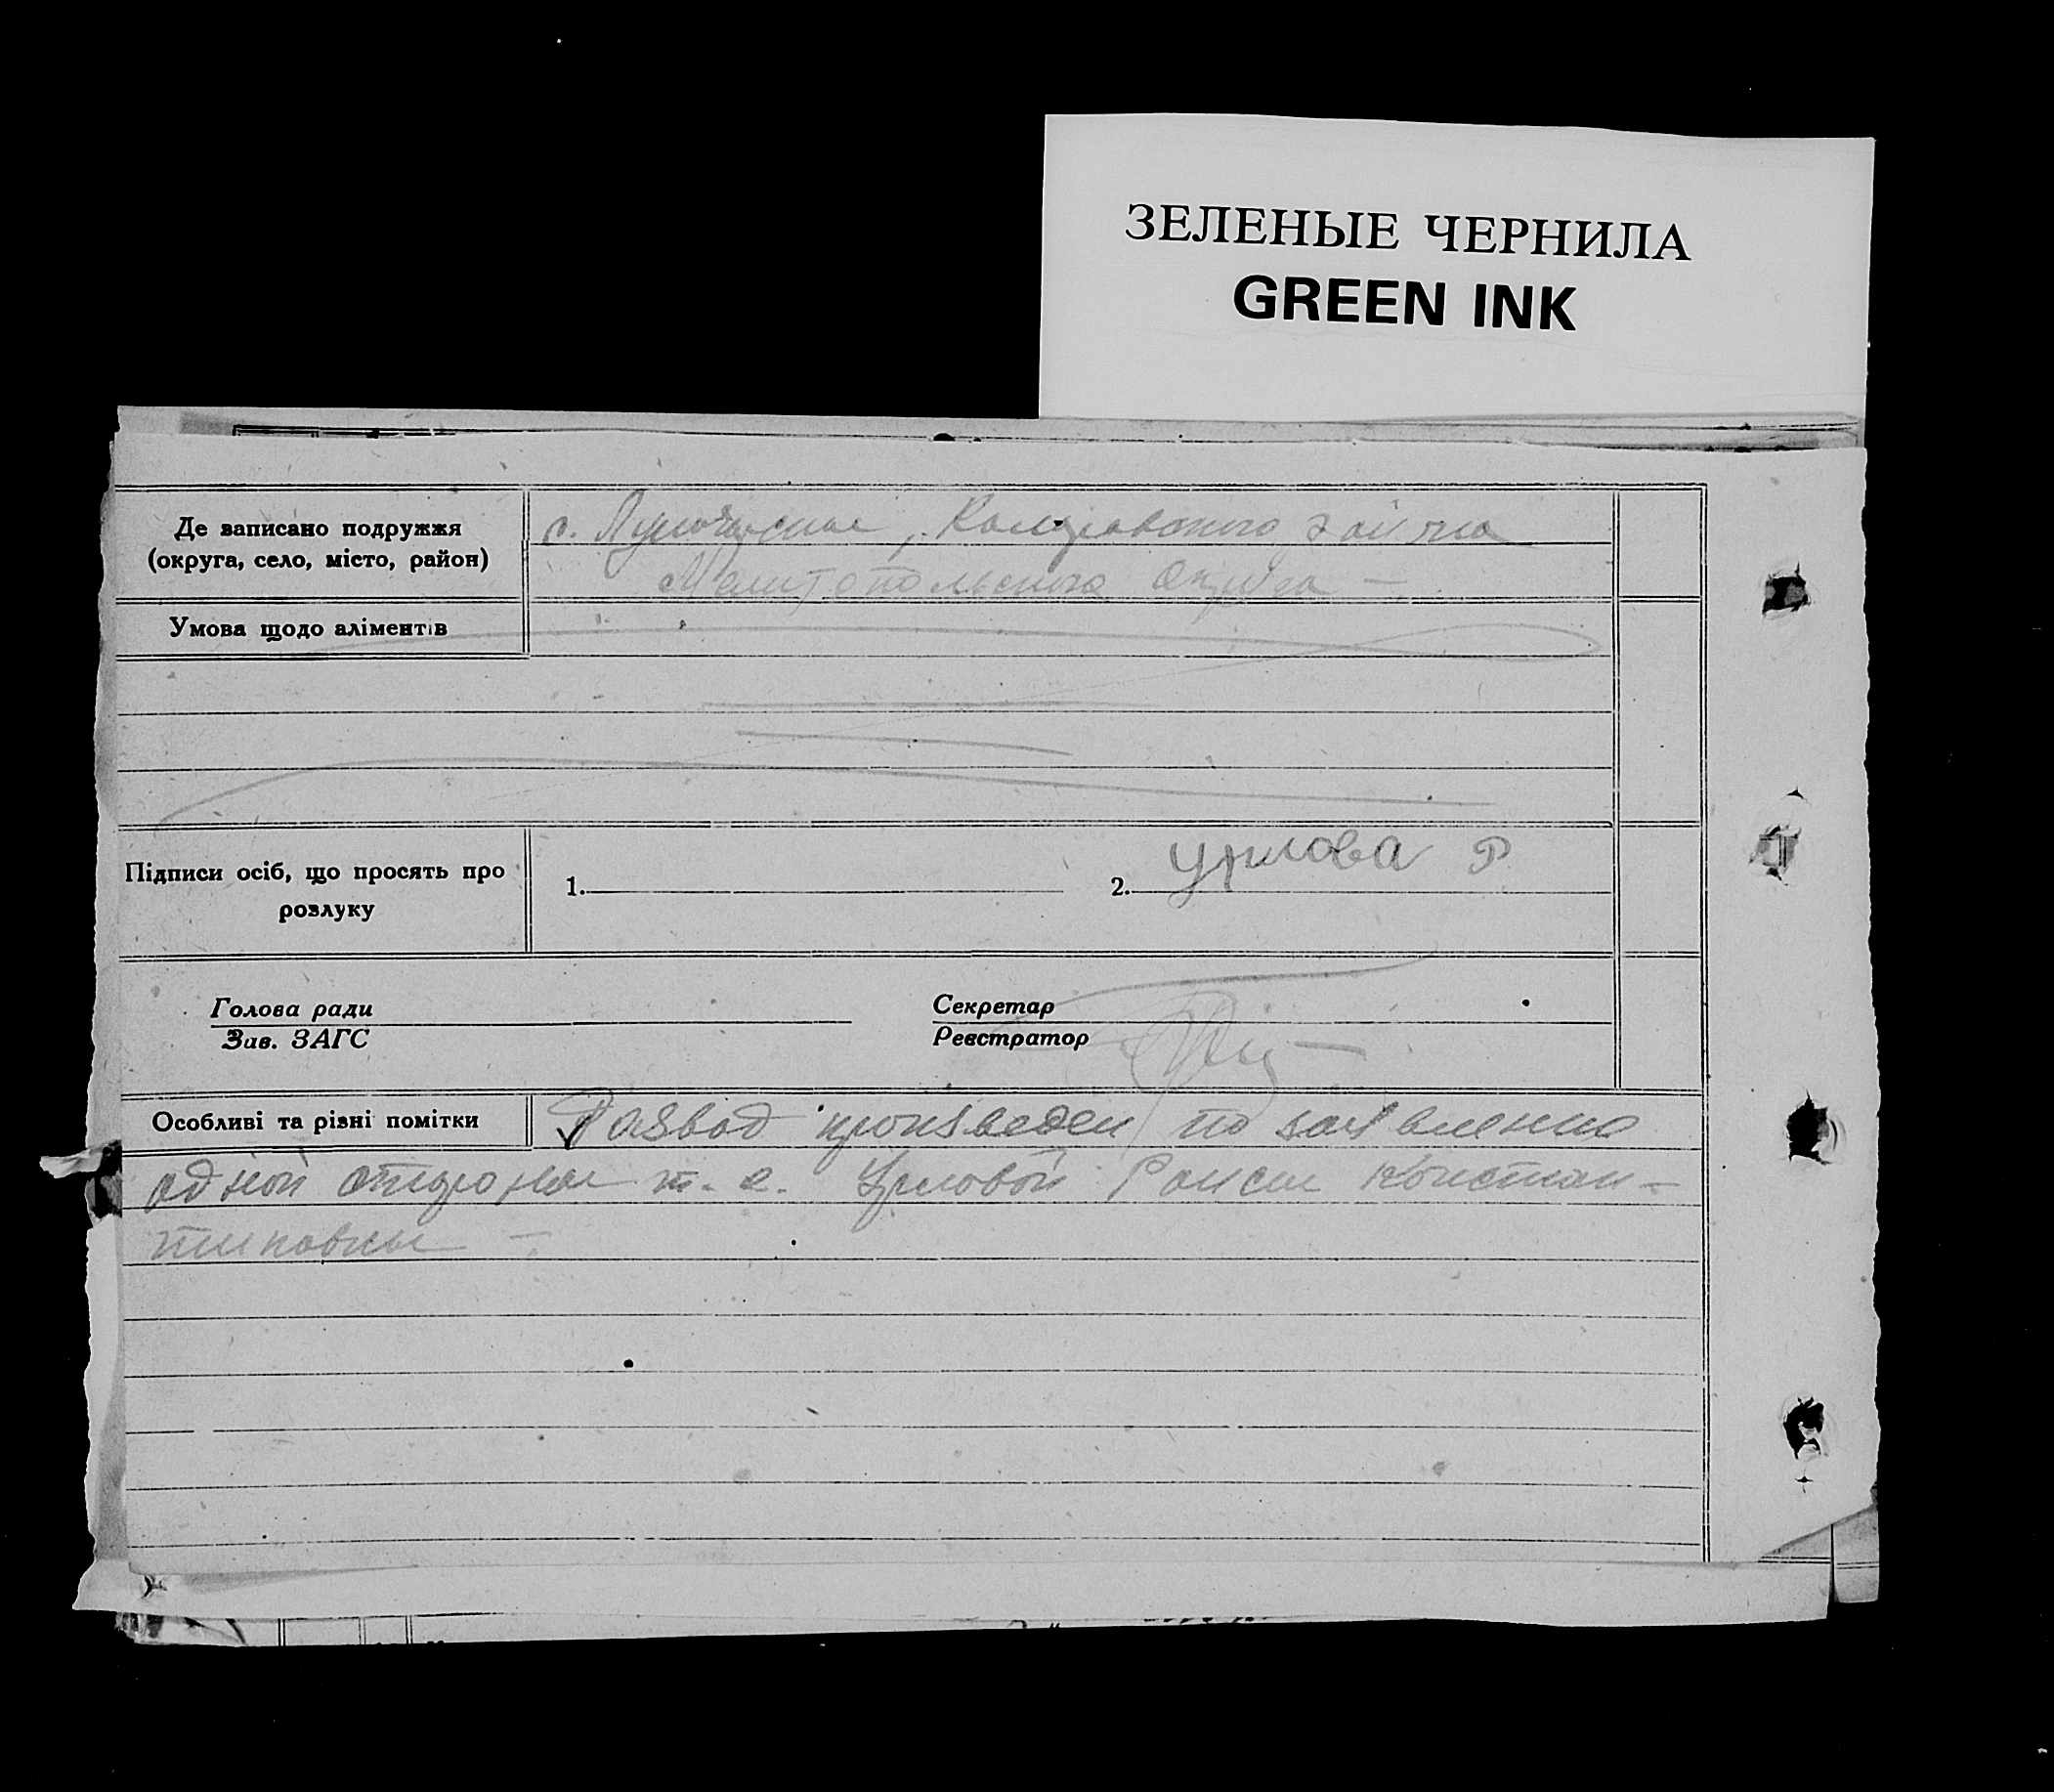 ЗЕЛЕНЫЕ ЧЕРНИЛА
GREEN INK
Де записано подружжя
(округа, село, місто, район)
с. района
Мелитопольского Округа —
Умова щодо аліментів
Підписи осіб, що просять про
розлуку
1.
2. Урлова Р
Голова ради
Зав. ЗАГС
Секретар
Реєстратор
Особливі та різні помітки
Развод произведен по заявлению
одной стороны т. е. Урловой Раисы Констан-
тиновны —